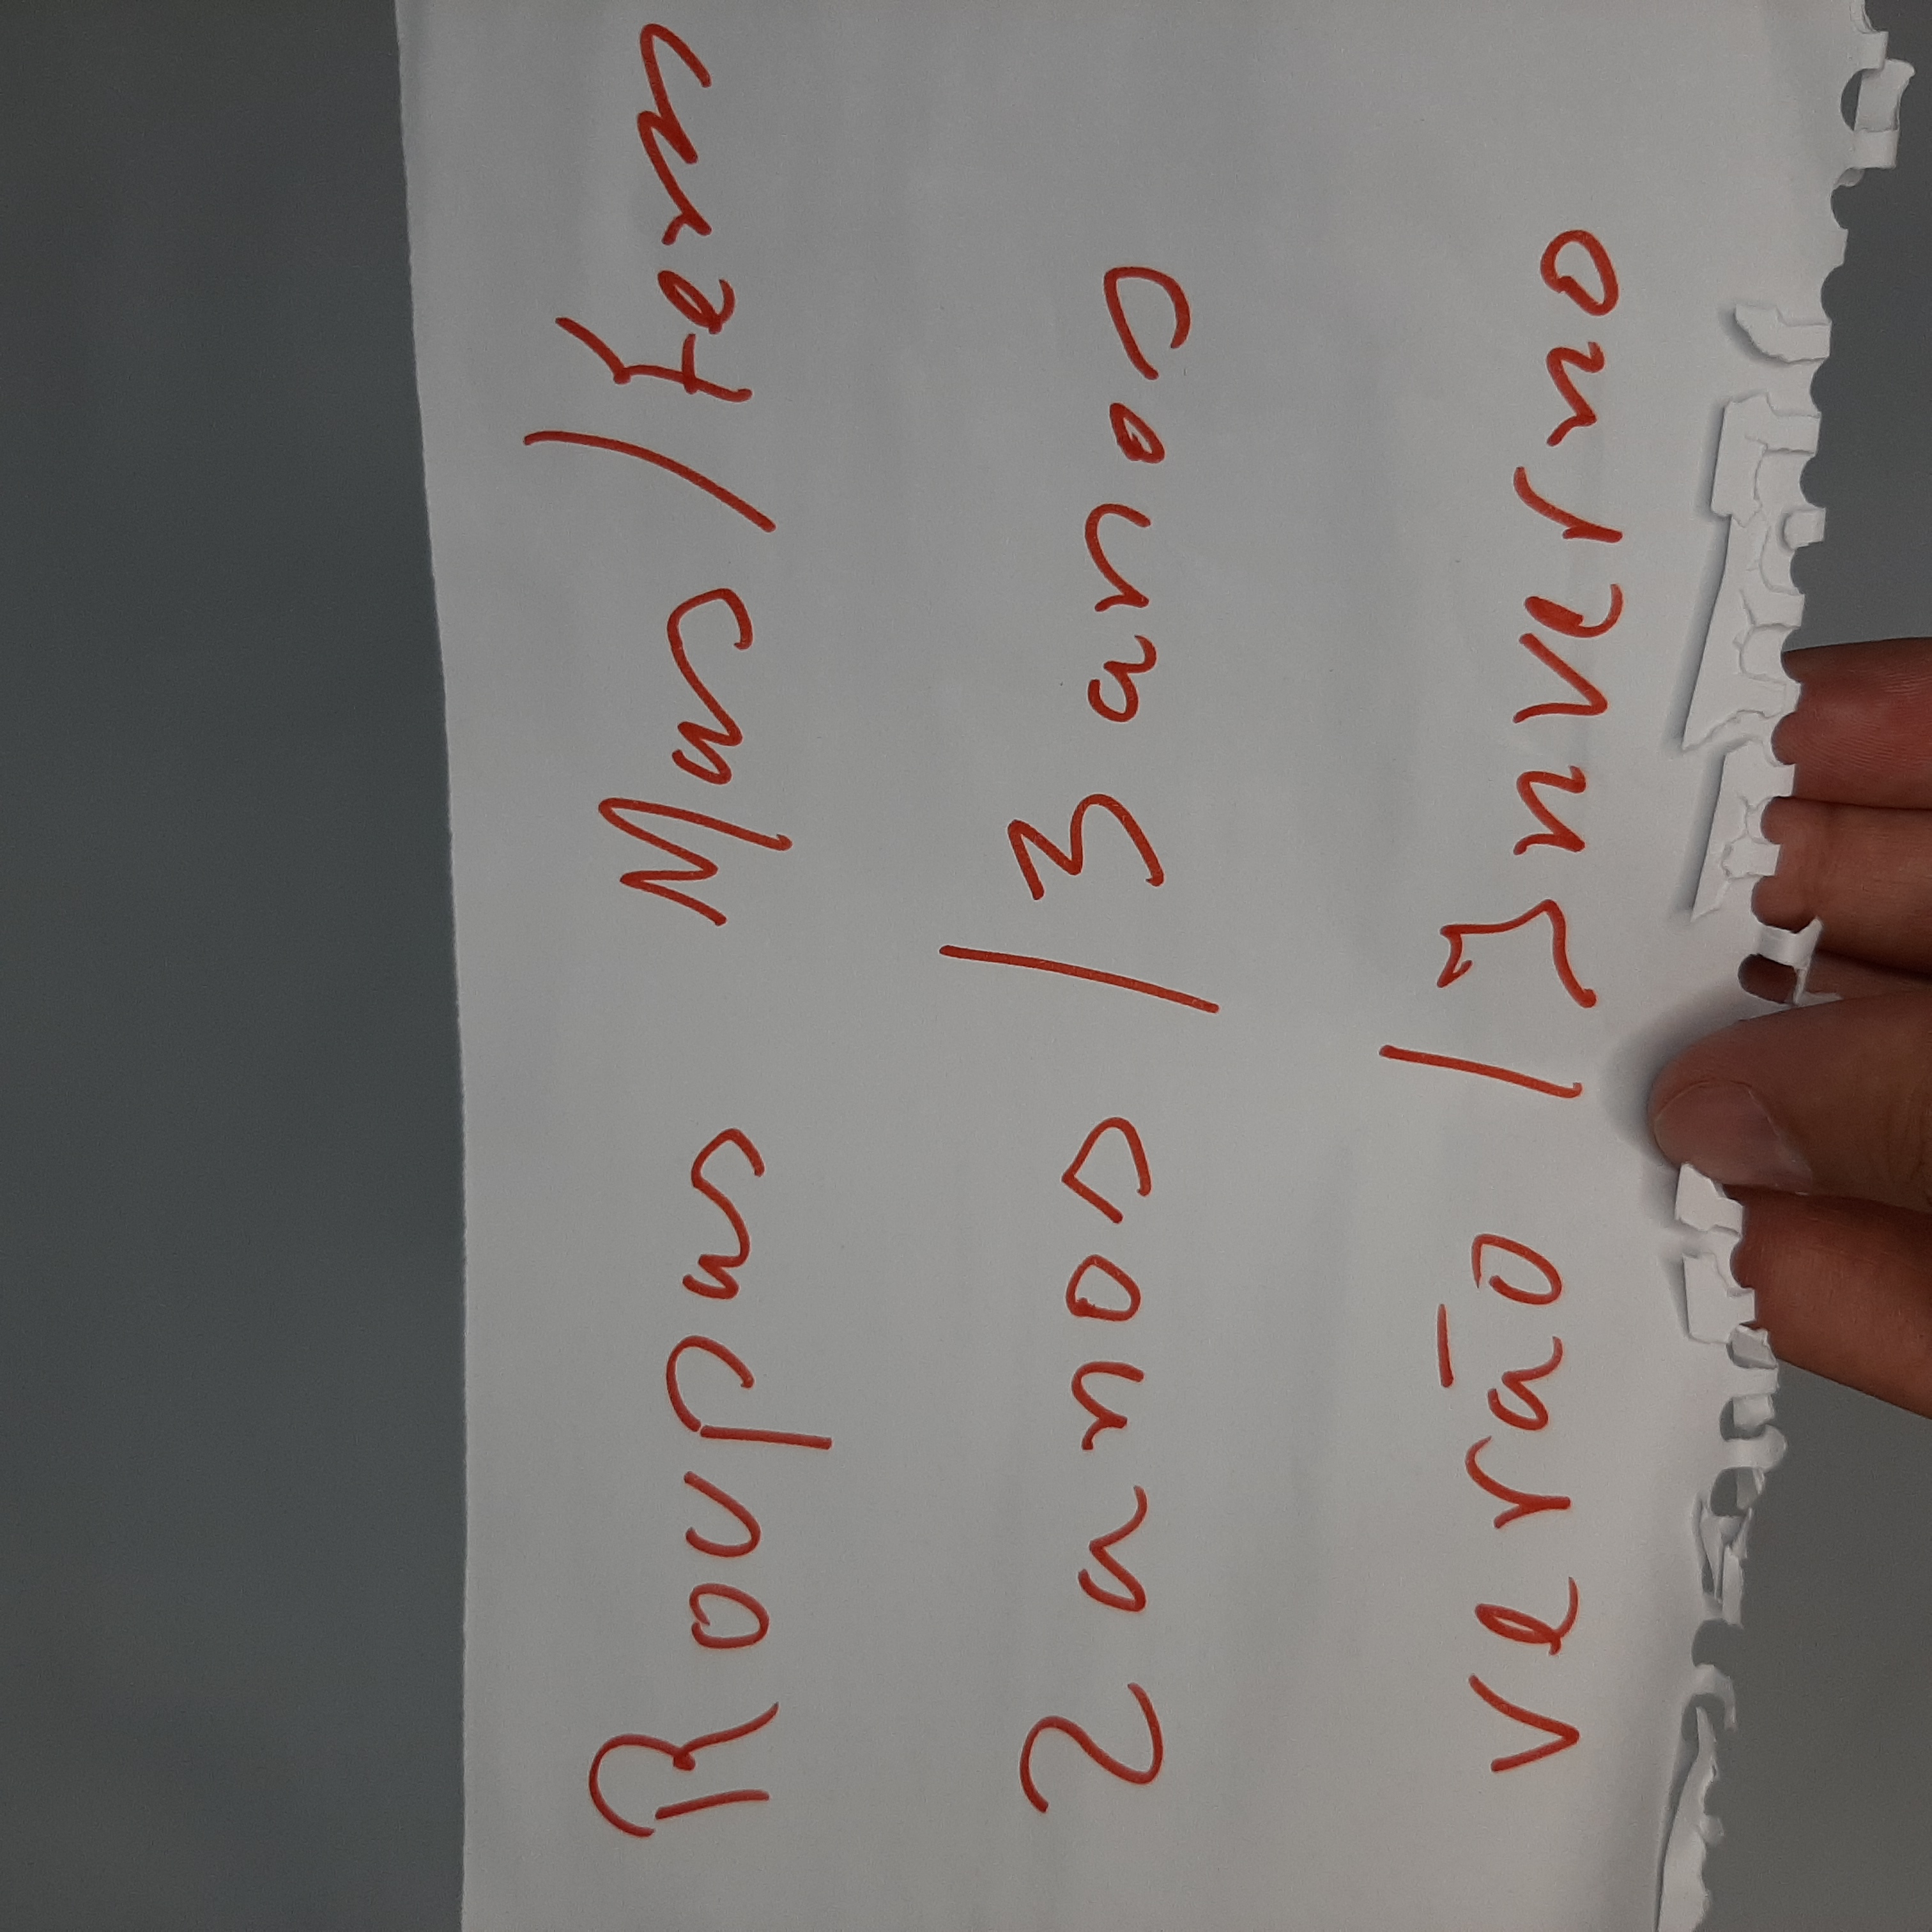 Roupas Mas/Fem
2 anos/3 anos
verão/Inverno